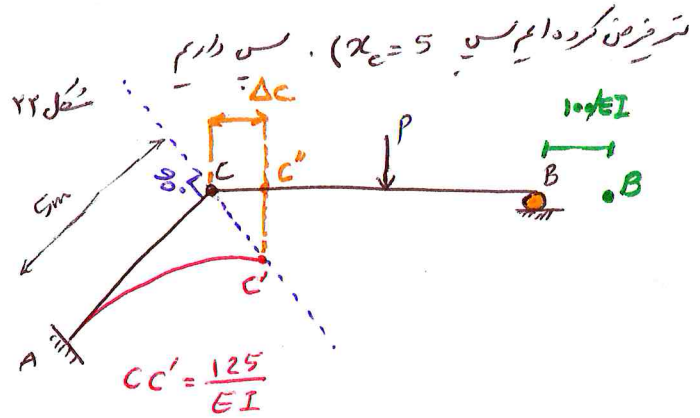 متر فرض کرده ایم پس x_c = 5). پس داریم
شکل ۲۳
ΔC
P
100/EI
5m
90°
C
C"
B
B
C'
A
CC' = 125/EI